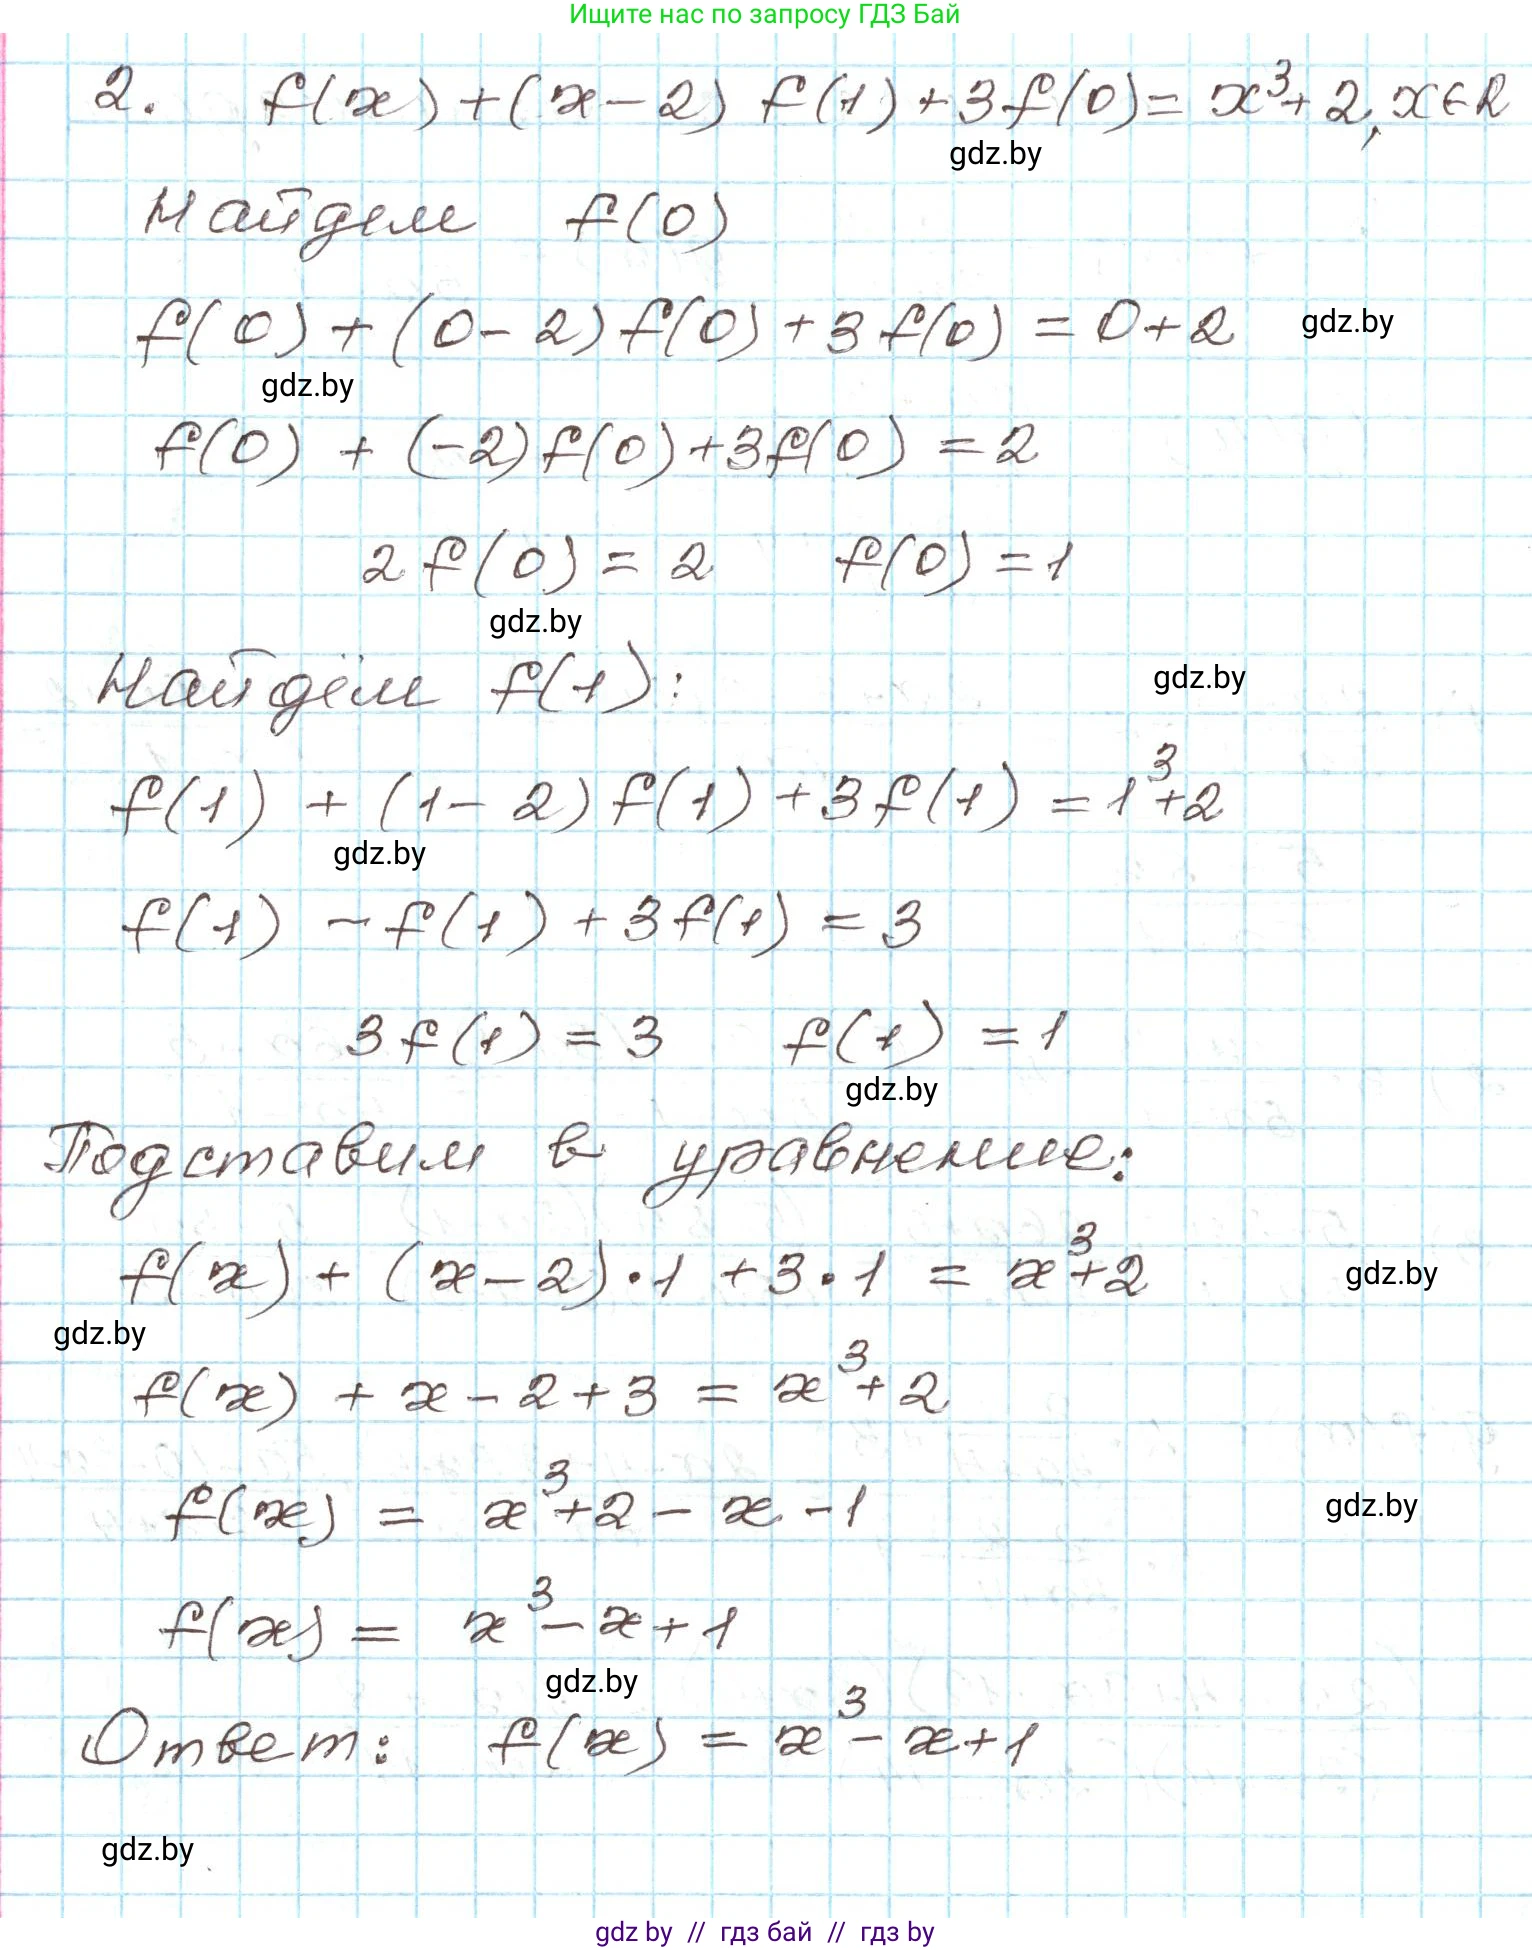 Ищите нас по запросу ГДЗ Бай
2. f(x) + (x - 2) f(1) + 3f(0) = x³ + 2, x ∈ R
gdz.by
Найдем f(0)
f(0) + (0 - 2) f(0) + 3f(0) = 0 + 2
gdz.by
gdz.by
f(0) + (-2) f(0) + 3f(0) = 2
2f(0) = 2 f(0) = 1
gdz.by
Найдём f(1):
gdz.by
f(1) + (1 - 2) f(1) + 3f(1) = 1³ + 2
gdz.by
f(1) - f(1) + 3f(1) = 3
3f(1) = 3 f(1) = 1
gdz.by
Подставим в уравнение:
f(x) + (x - 2) · 1 + 3 · 1 = x³ + 2
gdz.by
gdz.by
f(x) + x - 2 + 3 = x³ + 2
f(x) = x³ + 2 - x - 1
gdz.by
f(x) = x³ - x + 1
gdz.by
Ответ: f(x) = x³ - x + 1
gdz.by
gdz by // гдз бай // гдз by